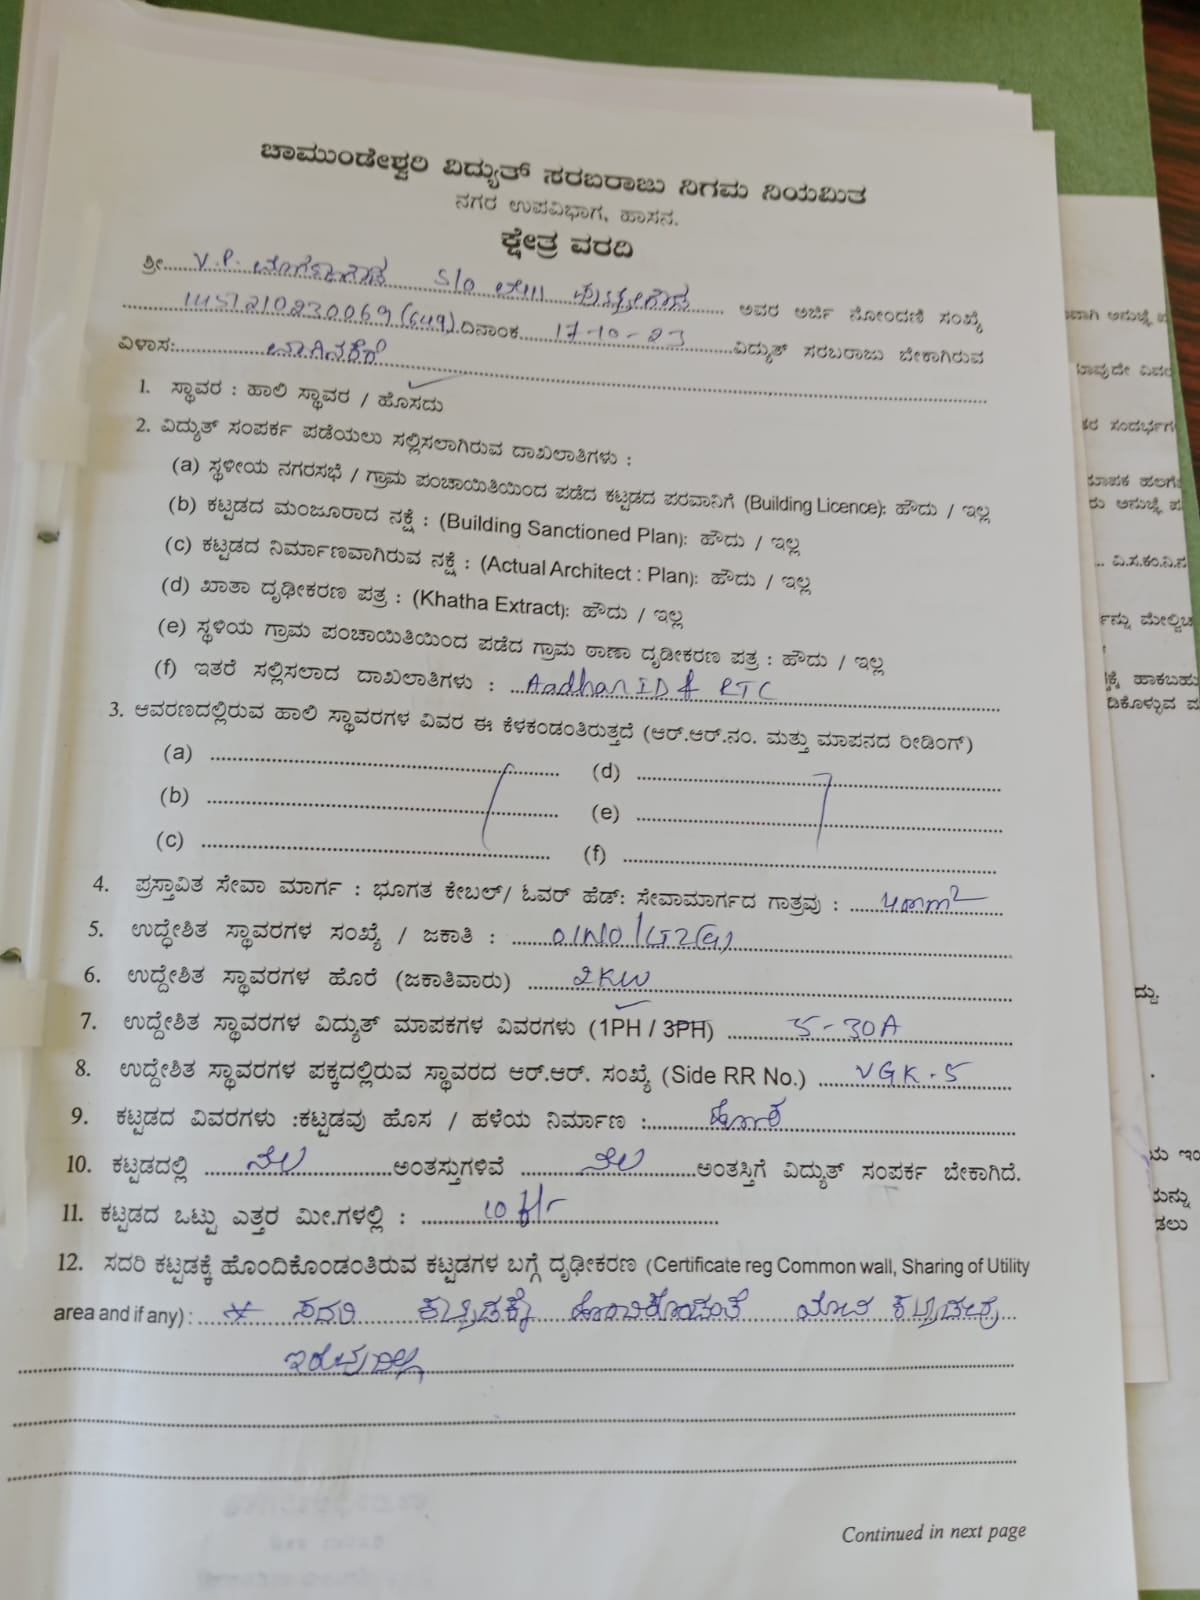 ಚಾಮುಂಡೇಶ್ವರಿ ವಿದ್ಯುತ್ ಸರಬರಾಜು ನಿಗಮ ನಿಯಮಿತ
ನಗರ ಉಪವಿಭಾಗ, ಹಾಸನ.
ಕ್ಷೇತ್ರ ವರದಿ
ಶ್ರೀ..... V.P. S/o ಅವರ ಅರ್ಜಿ ನೋಂದಣಿ ಸಂಖ್ಯೆ
..... (649) ದಿನಾಂಕ..... 17-10-23 .....ವಿದ್ಯುತ್ ಸರಬರಾಜು ಬೇಕಾಗಿರುವ
ವಿಳಾಸ:..... ಬಾಗಿನಕೆರೆ
1. ಸ್ಥಾವರ : ಹಾಲಿ ಸ್ಥಾವರ / ಹೊಸದು
2. ವಿದ್ಯುತ್ ಸಂಪರ್ಕ ಪಡೆಯಲು ಸಲ್ಲಿಸಲಾಗಿರುವ ದಾಖಲಾತಿಗಳು :
(a) ಸ್ಥಳೀಯ ನಗರಸಭೆ / ಗ್ರಾಮ ಪಂಚಾಯಿತಿಯಿಂದ ಪಡೆದ ಕಟ್ಟಡದ ಪರವಾನಿಗೆ (Building Licence): ಹೌದು / ಇಲ್ಲ
(b) ಕಟ್ಟಡದ ಮಂಜೂರಾದ ನಕ್ಷೆ : (Building Sanctioned Plan): ಹೌದು / ಇಲ್ಲ
(c) ಕಟ್ಟಡದ ನಿರ್ಮಾಣವಾಗಿರುವ ನಕ್ಷೆ : (Actual Architect : Plan): ಹೌದು / ಇಲ್ಲ
(d) ಖಾತಾ ದೃಢೀಕರಣ ಪತ್ರ : (Khatha Extract): ಹೌದು / ಇಲ್ಲ
(e) ಸ್ಥಳಿಯ ಗ್ರಾಮ ಪಂಚಾಯಿತಿಯಿಂದ ಪಡೆದ ಗ್ರಾಮ ಠಾಣಾ ದೃಡೀಕರಣ ಪತ್ರ : ಹೌದು / ಇಲ್ಲ
(f) ಇತರೆ ಸಲ್ಲಿಸಲಾದ ದಾಖಲಾತಿಗಳು : Aadhar ID & RTC
3. ಆವರಣದಲ್ಲಿರುವ ಹಾಲಿ ಸ್ಥಾವರಗಳ ವಿವರ ಈ ಕೆಳಕಂಡಂತಿರುತ್ತದೆ (ಆರ್.ಆರ್.ನಂ. ಮತ್ತು ಮಾಪನದ ರೀಡಿಂಗ್)
(a) ..... (d) .....
(b) ..... (e) .....
(c) ..... (f) .....
4. ಪ್ರಸ್ತಾವಿತ ಸೇವಾ ಮಾರ್ಗ : ಭೂಗತ ಕೇಬಲ್/ ಓವರ್ ಹೆಡ್: ಸೇವಾಮಾರ್ಗದ ಗಾತ್ರವು : 4mm²
5. ಉದ್ಧೇಶಿತ ಸ್ಥಾವರಗಳ ಸಂಖ್ಯೆ / ಜಕಾತಿ : 01No/LT2(a)
6. ಉದ್ದೇಶಿತ ಸ್ಥಾವರಗಳ ಹೊರೆ (ಜಕಾತಿವಾರು) 2KW
7. ಉದ್ದೇಶಿತ ಸ್ಥಾವರಗಳ ವಿದ್ಯುತ್ ಮಾಪಕಗಳ ವಿವರಗಳು (1PH / 3PH) 5-30A
8. ಉದ್ದೇಶಿತ ಸ್ಥಾವರಗಳ ಪಕ್ಕದಲ್ಲಿರುವ ಸ್ಥಾವರದ ಆರ್.ಆರ್. ಸಂಖ್ಯೆ (Side RR No.) VGK-5
9. ಕಟ್ಟಡದ ವಿವರಗಳು :ಕಟ್ಟಡವು ಹೊಸ / ಹಳೆಯ ನಿರ್ಮಾಣ : ಹೊಸ
10. ಕಟ್ಟಡದಲ್ಲಿ ..... ನೆಲ .....ಅಂತಸ್ತುಗಳಿವೆ ..... ನೆಲ .....ಅಂತಸ್ತಿಗೆ ವಿದ್ಯುತ್ ಸಂಪರ್ಕ ಬೇಕಾಗಿದೆ.
11. ಕಟ್ಟಡದ ಒಟ್ಟು ಎತ್ತರ ಮೀ.ಗಳಲ್ಲಿ : 10
12. ಸದರಿ ಕಟ್ಟಡಕ್ಕೆ ಹೊಂದಿಕೊಂಡಂತಿರುವ ಕಟ್ಟಡಗಳ ಬಗ್ಗೆ ದೃಢೀಕರಣ (Certificate reg Common wall, Sharing of Utility
area and if any) : * ಸದರಿ ಕಟ್ಟಡಕ್ಕೆ ಹೊಂದಿಕೊಂಡಂತೆ ಕಟ್ಟಡಗಳು
ಇರುವುದಿಲ್ಲ
Continued in next page